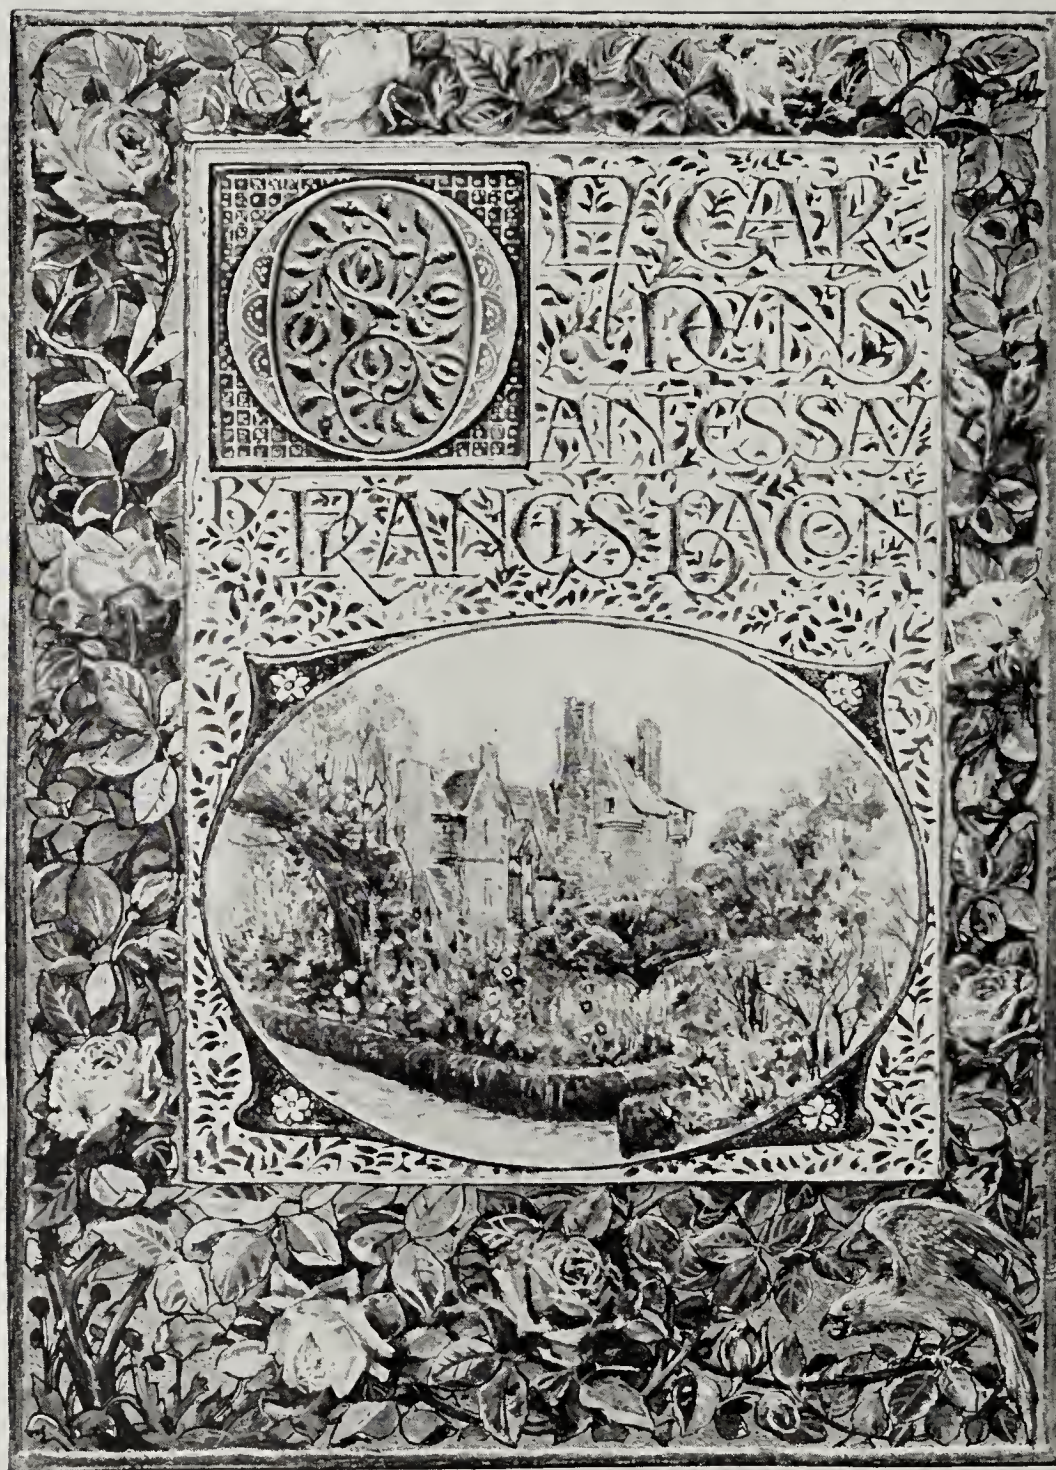 OF GAR
DENS
AN ESSAY
BY FRANCIS BACON